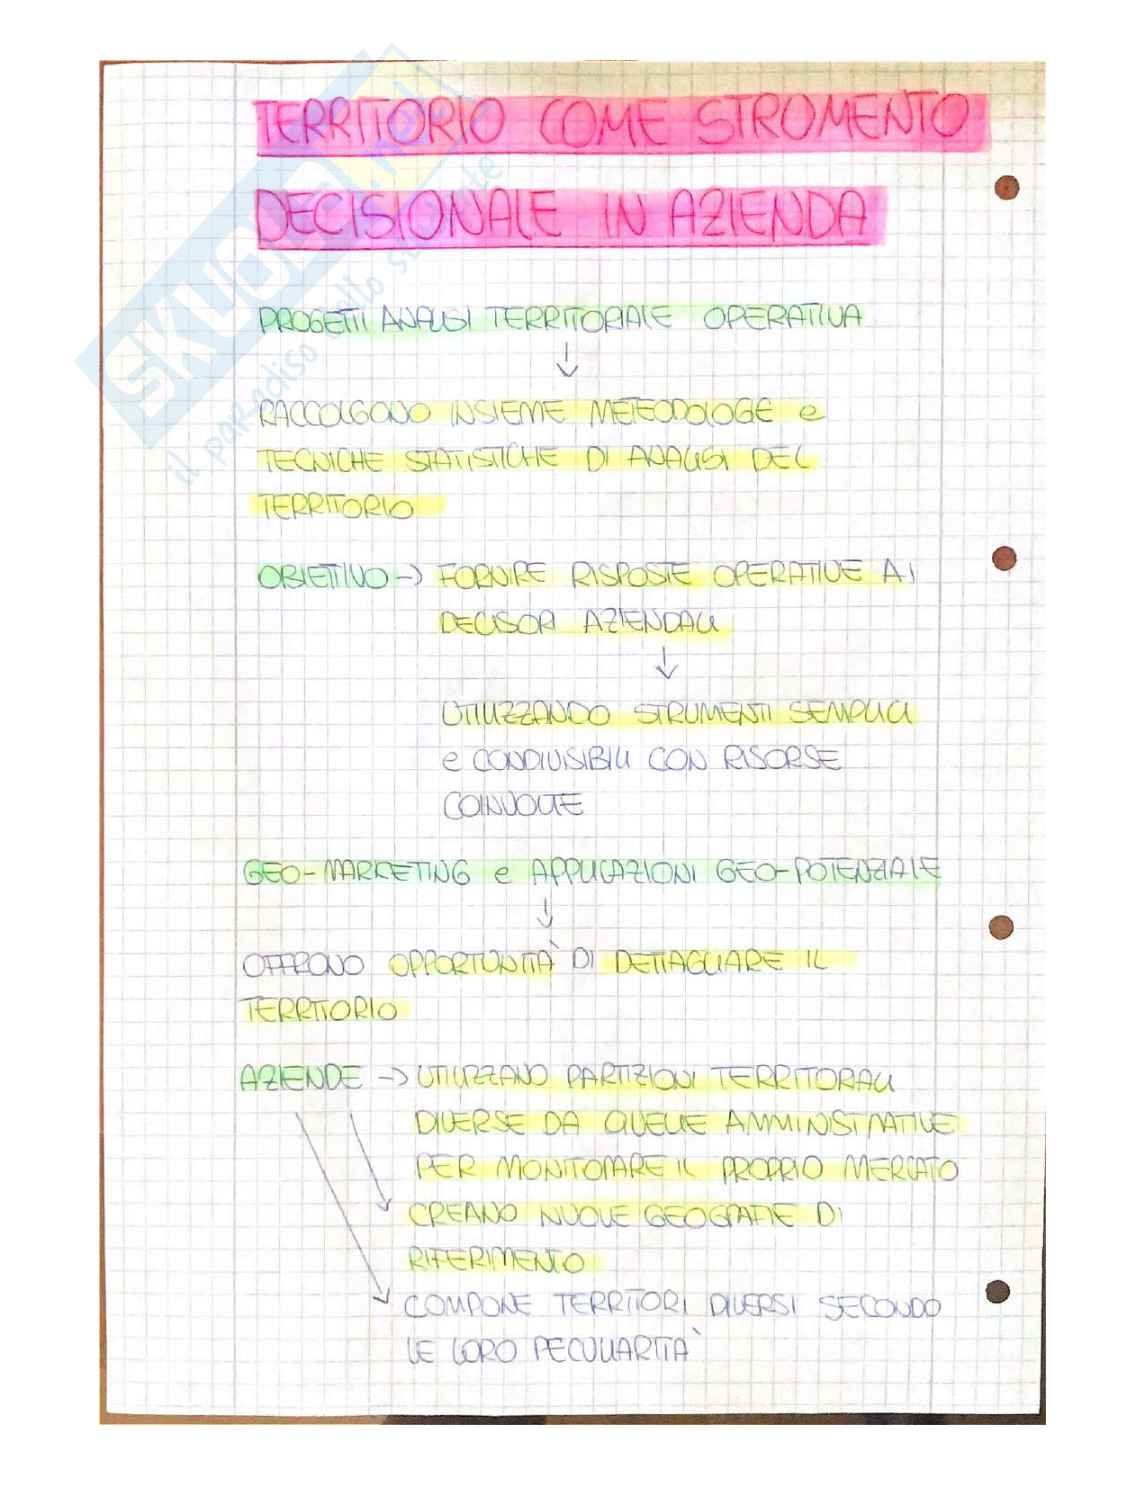 TERRITORIO COME STROMENTO
DECISIONALE IN AZIENDA
PROGETTI ANALISI TERRITORIALE OPERATIVA
↓
RACCOLGONO INSIEME METEODOLOGE e
TECNICHE STATISTICHE DI ANALISI DEL
TERRITORIO
OBIETTIVO → FORNIRE RISPOSTE OPERATIVE AI
DECISORI AZIENDALI
↓
UTILIZZANDO STRUMENTI SEMPLICI
e CONDIVISIBILI CON RISORSE
COINVOLTE
GEO-MARKETING e APPLICAZIONI GEO-POTENZIALE
↓
OFFRONO OPPORTUNITÀ DI DETTAGLIARE IL
TERRITORIO
AZIENDE → UTILIZZANO PARTIZIONI TERRITORALI
DIVERSE DA QUELLE AMMINISTRATIVE
PER MONITORARE IL PROPRIO MERCATO
CREANO NUOVE GEOGRAFIE DI
RIFERIMENTO
COMPONE TERRITORI DIVERSI SECONDO
LE LORO PECULIARITÀ
SKUOLA.net
il paradiso dello studente